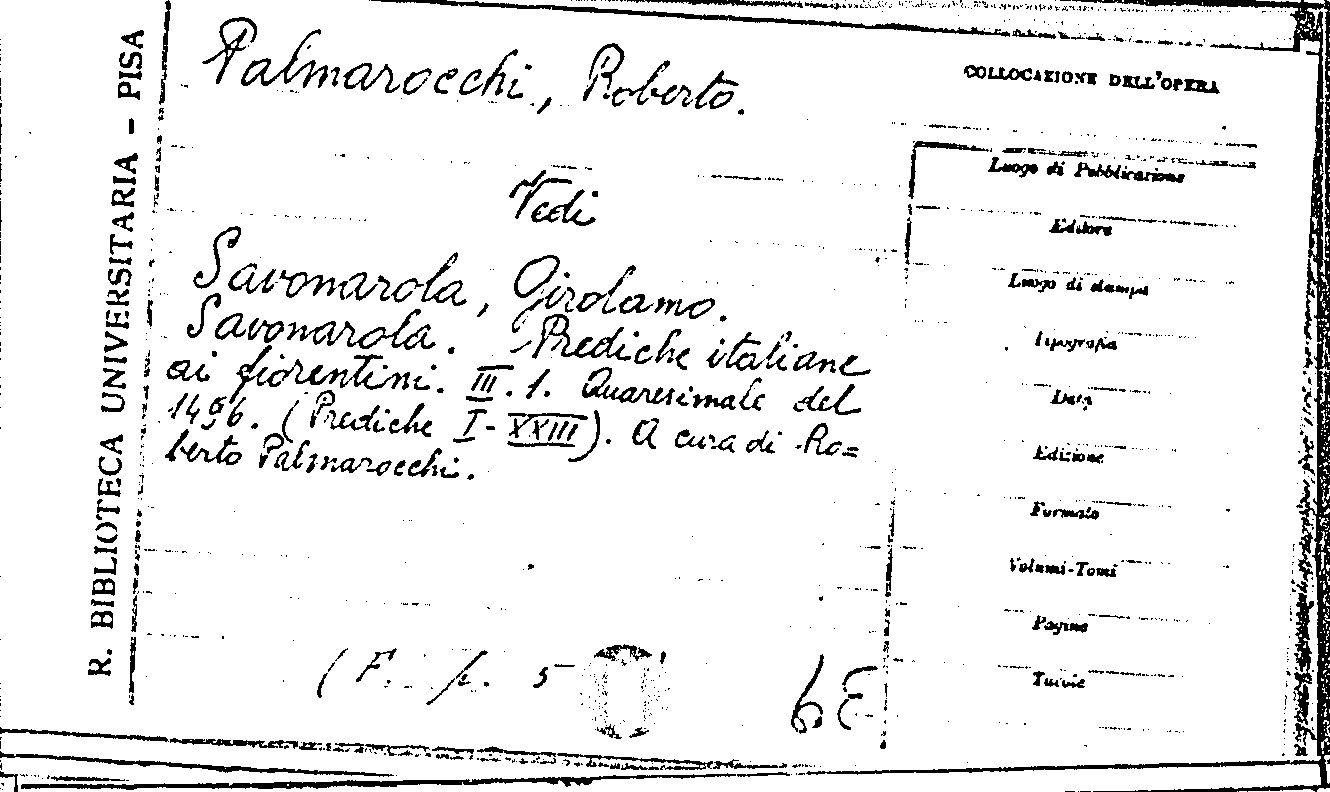 R. BIBLIOTECA UNIVERSITARIA - PISA
Palmarocchi, Roberto.
Vedi
Savonarola, Girolamo.
Savonarola. Prediche italiane
ai fiorentini. III. 1. Quaresimale del
1496. (Prediche I-XXIII). A cura di Ro=
berto Palmarocchi.
(F. p. 5
COLLOCAZIONE DELL'OPERA
Luogo di Pubblicazione
Editore
Luogo di stampa
Tipografia
Data
Edizione
Formato
Volumi-Tomi
Pagine
Tavole